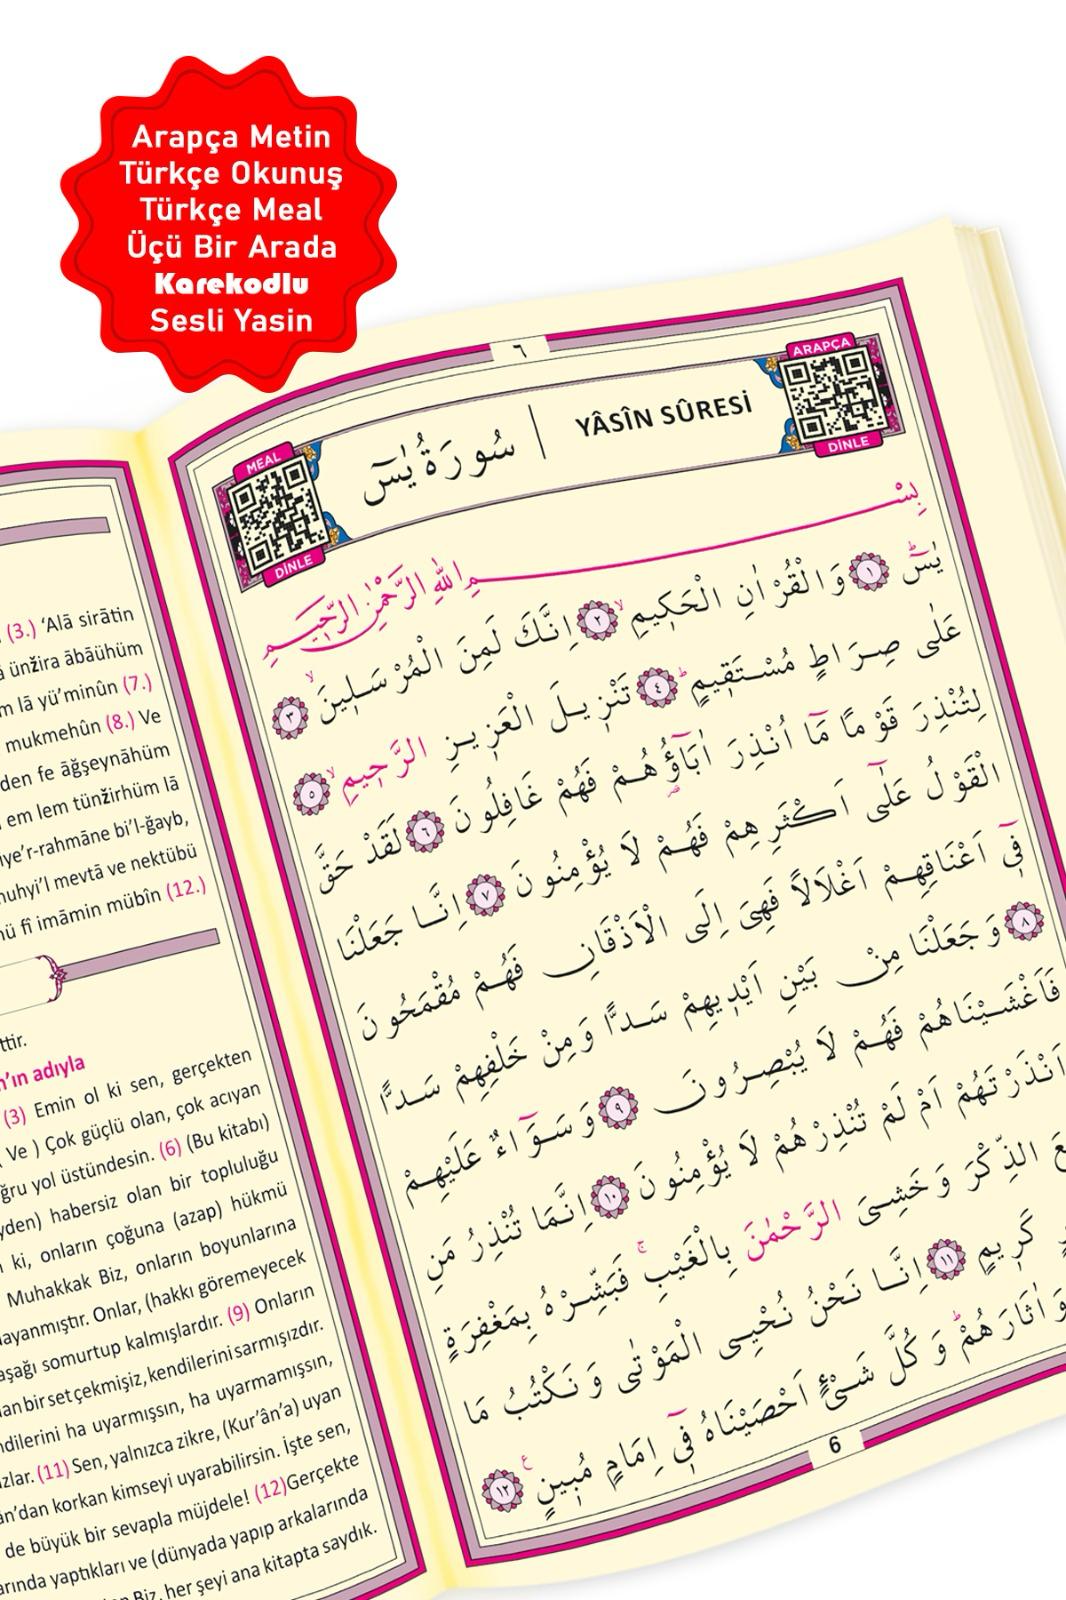 Arapça Metin
Türkçe Okunuş
Türkçe Meal
Üçü Bir Arada
Karekodlu
Sesli Yasin
٦
ARAPÇA
DİNLE
YÂSÎN SÛRESİ
سُورَةُ يٰسٓ
MEAL
DİNLE
بِسْمِ اللّٰهِ الرَّحْمٰنِ الرَّح۪يمِ
يٰسٓ ﴿١﴾ وَالْقُرْاٰنِ الْحَك۪يمِۙ ﴿٢﴾ اِنَّكَ لَمِنَ الْمُرْسَل۪ينَۙ ﴿٣﴾
عَلٰى صِرَاطٍ مُسْتَق۪يمٍۜ ﴿٤﴾ تَنْز۪يلَ الْعَز۪يزِ الرَّح۪يمِۙ ﴿٥﴾
لِتُنْذِرَ قَوْمًا مَٓا اُنْذِرَ اٰبَٓاؤُ۬هُمْ فَهُمْ غَافِلُونَ ﴿٦﴾ لَقَدْ حَقَّ
الْقَوْلُ عَلٰٓى اَكْثَرِهِمْ فَهُمْ لَا يُؤْمِنُونَ ﴿٧﴾ اِنَّا جَعَلْنَا
ف۪ٓي اَعْنَاقِهِمْ اَغْلَالًا فَهِيَ اِلَى الْاَذْقَانِ فَهُمْ مُقْمَحُونَ
﴿٨﴾ وَجَعَلْنَا مِنْ بَيْنِ اَيْد۪يهِمْ سَدًّا وَمِنْ خَلْفِهِمْ سَدًّا
فَاَغْشَيْنَاهُمْ فَهُمْ لَا يُبْصِرُونَ ﴿٩﴾ وَسَوَٓاءٌ عَلَيْهِمْ
اَنْذَرْتَهُمْ اَمْ لَمْ تُنْذِرْهُمْ لَا يُؤْمِنُونَ ﴿١٠﴾ اِنَّمَا تُنْذِرُ مَنِ
الذِّكْرَ وَخَشِيَ الرَّحْمٰنَ بِالْغَيْبِۚ فَبَشِّرْهُ بِمَغْفِرَةٍ
كَر۪يمٍ ﴿١١﴾ اِنَّا نَحْنُ نُحْيِي الْمَوْتٰى وَنَكْتُبُ مَا
وَاٰثَارَهُمْۜ وَكُلَّ شَيْءٍ اَحْصَيْنَاهُ ف۪ٓي اِمَامٍ مُب۪ينٍ۟ ﴿١٢﴾
6
(3.) ‘Alā sirātin
ünžira ābāühüm
lā yü’minûn (7.)
mukmehûn (8.) Ve
fe āğşeynāhüm
em lem tünžirhüm lā
bi’l-ğayb,
mevtā ve nektübü
fî imāmin mübîn (12.)
adıyla
(3) Emin ol ki sen, gerçekten
( Ve ) Çok güçlü olan, çok acıyan
yol üstündesin. (6) (Bu kitabı)
habersiz olan bir topluluğu
ki, onların çoğuna (azap) hükmü
Muhakkak Biz, onların boyunlarına
Onlar, (hakkı göremeyecek
somurtup kalmışlardır. (9) Onların
bir set çekmişiz, kendilerini sarmışızdır.
ha uyarmışsın, ha uyarmamışsın,
(11) Sen, yalnızca zikre, (Kur’ân’a) uyan
korkan kimseyi uyarabilirsin. İşte sen,
de büyük bir sevapla müjdele! (12)Gerçekte
yaptıkları ve (dünyada yapıp arkalarında
Biz, her şeyi ana kitapta saydık.